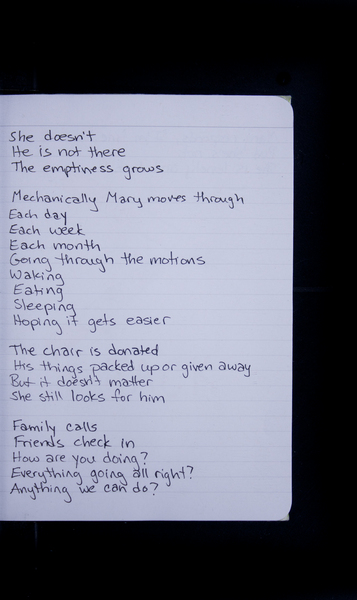 She doesn't
He is not there
The emptiness grows
Mechanically Mary moves through
Each day
Each week
Each month
Going through the motions
Waking
Eating
Sleeping
Hoping it gets easier
The chair is donated
His things packed up or given away
But it doesn't matter
She still looks for him
Family calls
Friends check in
How are you doing?
Everything going all right?
Anything we can do?